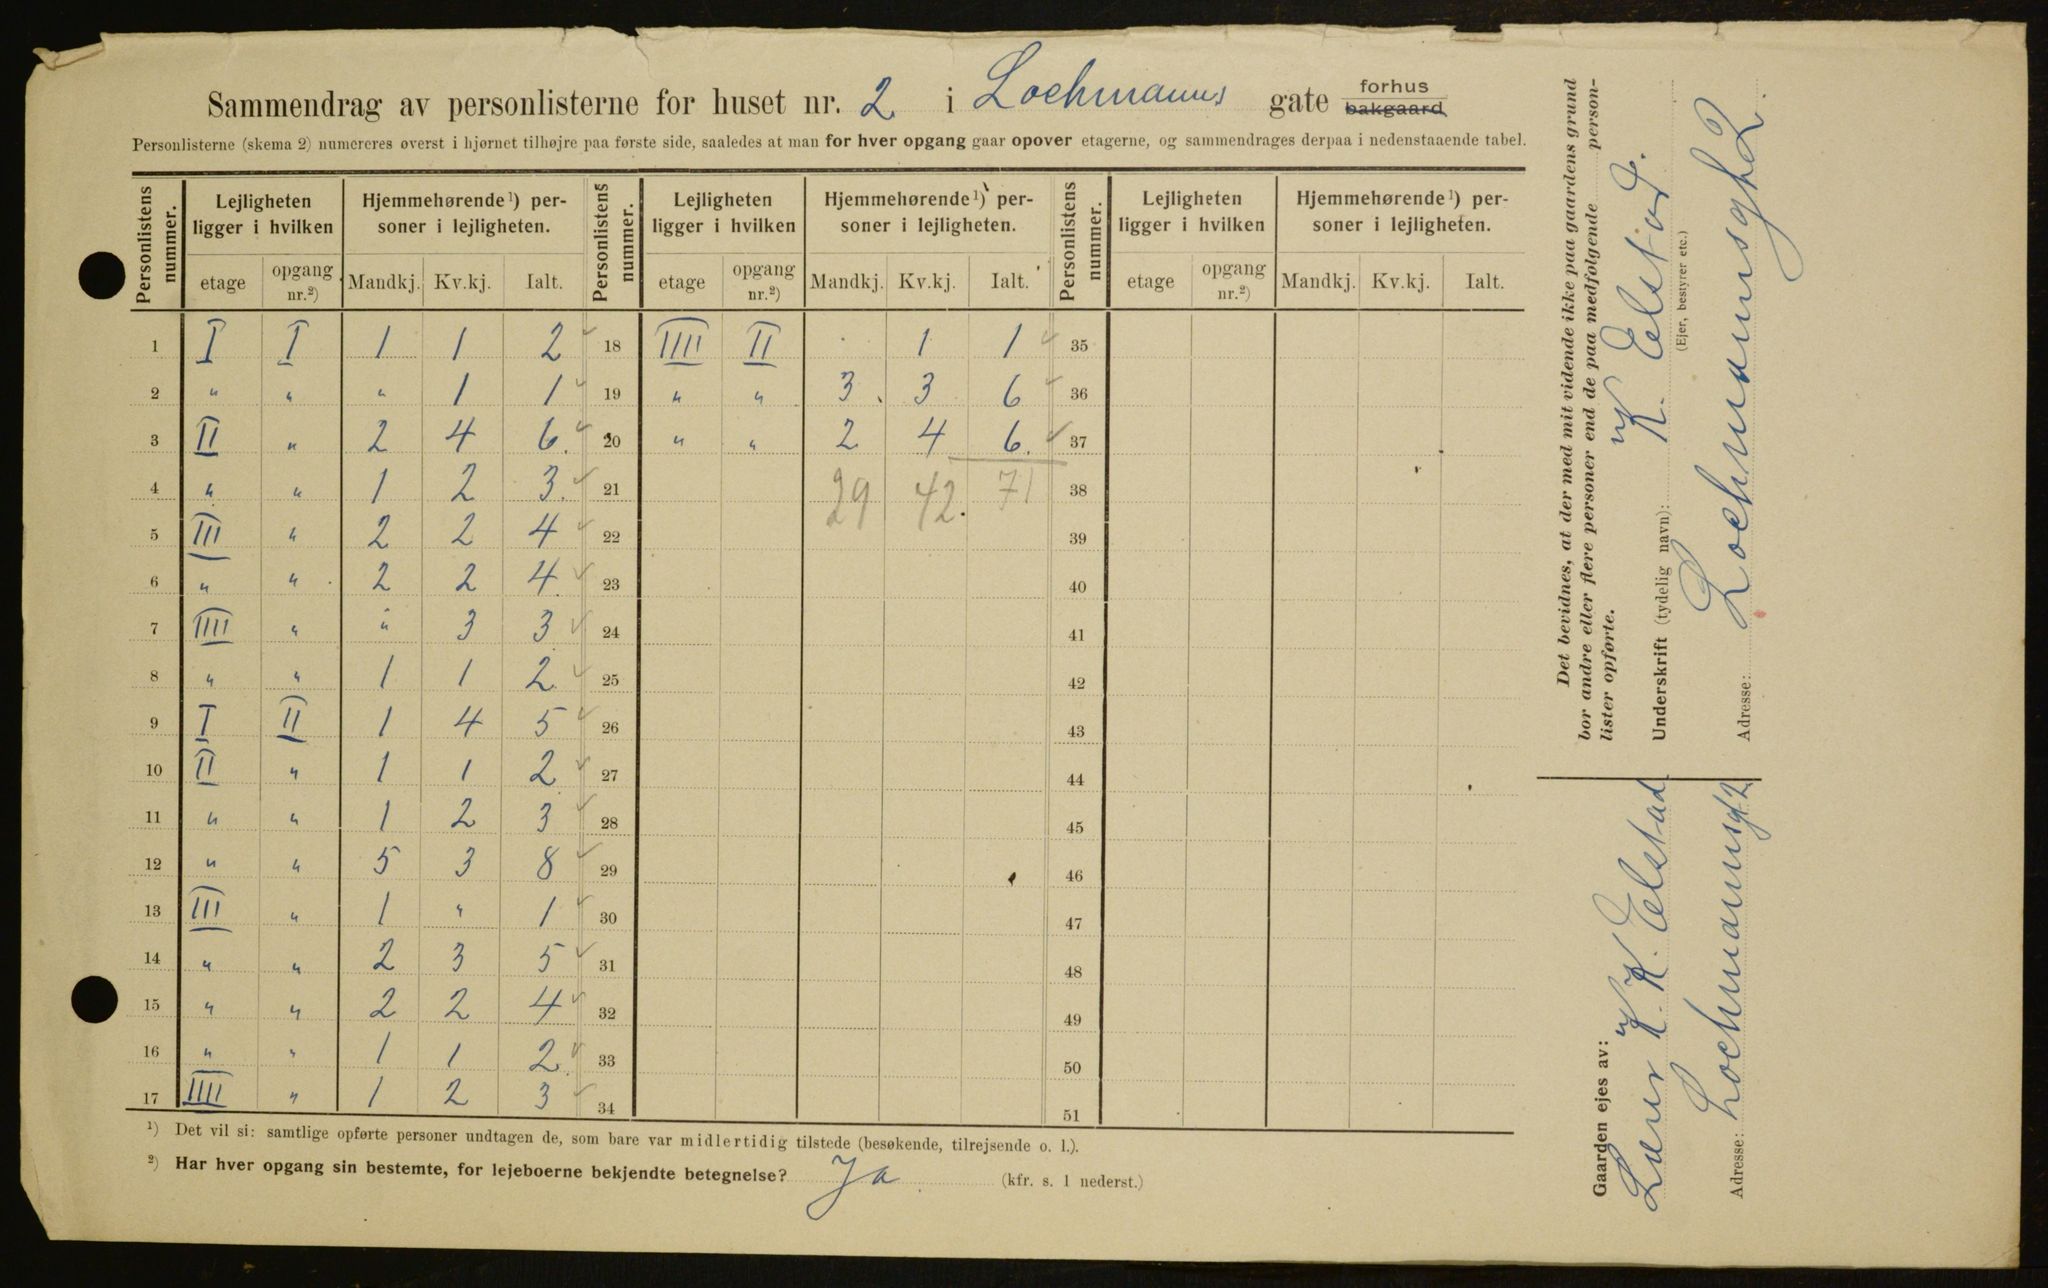 Sammendrag av personlisterne for huset nr. 2 i Lochmanns gate forhus
bakgaard
Personlisterne (skema 2) numereres øverst i hjørnet tilhøjre paa første side, saaledes at man for hver opgang gaar opover etagerne, og sammendrages derpaa i nedenstaaende tabel.
Personlistens nummer. Lejligheten ligger i hvilken Hjemmehørende¹) personer i lejligheten. Personlistens nummer. Lejligheten ligger i hvilken Hjemmehørende¹) personer i lejligheten. Personlistens nummer. Lejligheten ligger i hvilken Hjemmehørende¹) personer i lejligheten.
etage opgang nr.²) Mandkj. Kv.kj. Ialt. etage opgang nr.²) Mandkj. Kv.kj. Ialt. etage opgang nr.²) Mandkj. Kv.kj. Ialt.
1 I I 1 1 2 18 IIII II 1 1 35
2 " " " 1 1 19 " " 3 3 6 36
3 II " 2 4 6. 20 " " 2 4 6. 37
4 " " 1 2 3. 21 29 42. 71 38
5 III " 2 2 4 22 39
6 " " 2 2 4 23 40
7 IIII " " 3 3 24 41
8 " " 1 1 2 25 42
9 I II 1 4 5 26 43
10 II " 1 1 2 27 44
11 " " 1 2 3 28 45
12 " " 5 3 8 29 46
13 III " 1 " 1 30 47
14 " " 2 3 5 31 48
15 " " 2 2 4 32 49
16 " " 1 1 2 33 50
17 IIII " 1 2 3 34 51
¹) Det vil si: samtlige opførte personer undtagen de, som bare var midlertidig tilstede (besøkende, tilrejsende o. l.).
²) Har hver opgang sin bestemte, for lejeboerne bekjendte betegnelse? Ja (kfr. s. 1 nederst.)
Det bevidnes, at der med mit vidende ikke paa gaardens grund
bor andre eller flere personer end de paa medfølgende person-
lister opførte.
Underskrift (tydelig navn): K. Elstad.
(Ejer, bestyrer etc.)
Adresse: Lochmannsgt 2.
Gaarden ejes av:
K. Elstad
Adresse: Lochmannsgt 2